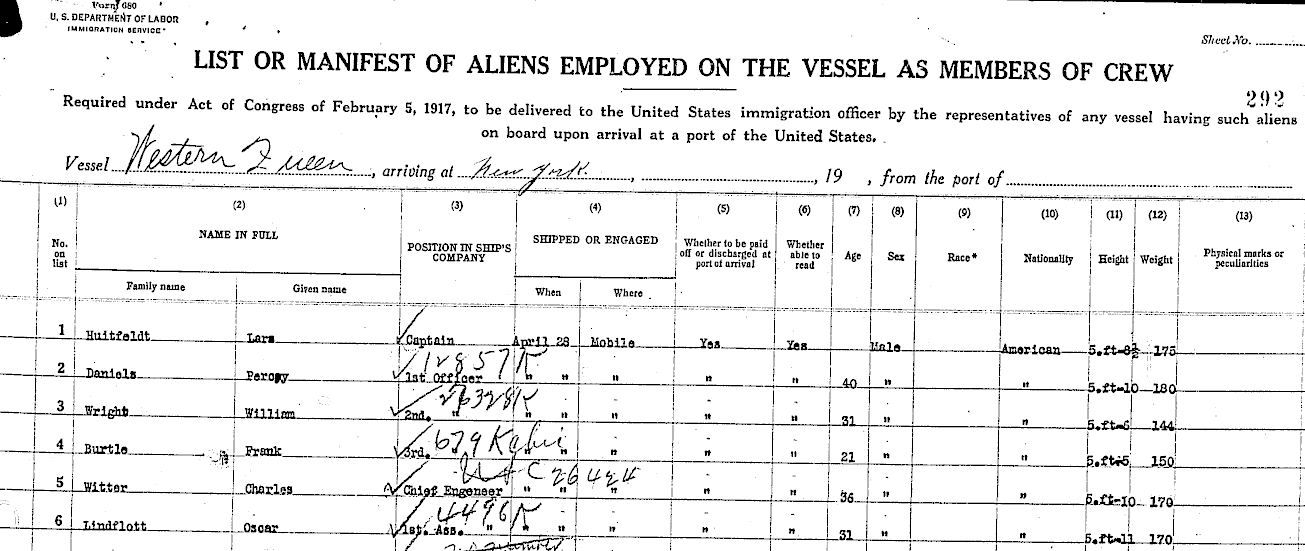 Form 680
U. S. DEPARTMENT OF LABOR
IMMIGRATION SERVICE
Sheet No.
LIST OR MANIFEST OF ALIENS EMPLOYED ON THE VESSEL AS MEMBERS OF CREW
292
Required under Act of Congress of February 5, 1917, to be delivered to the United States immigration officer by the representatives of any vessel having such aliens
on board upon arrival at a port of the United States.
Vessel Western Queen, arriving at New York., , 19 , from the port of
(1) (2) (3) (4) (5) (6) (7) (8) (9) (10) (11) (12) (13)
No. on list NAME IN FULL POSITION IN SHIP'S COMPANY SHIPPED OR ENGAGED Whether to be paid off or discharged at port of arrival Whether able to read Age Sex Race* Nationality Height Weight Physical marks or peculiarities
Family name Given name When Where
1 Huitfeldt Lars Captain April 28 Mobile Yes Yes Male American 5.ft-8½ 175
12857K
2 Daniels Percy 1st Officer " " " " " 40 " " 5.ft-10 180
27328K
3 Wright William 2nd. " " " " " " 31 " " 5.ft-6 144
679
4 Burtle Frank 3rd. " " " " " 21 " " 5.ft-5 150
C 26424
5 Witter Charles Chief Engeneer " " " " " 36 " " 5.ft-10 170
4496K
6 Lindflott Oscar 1st. Ass. " " " " " " 31 " " 5.ft-11 170